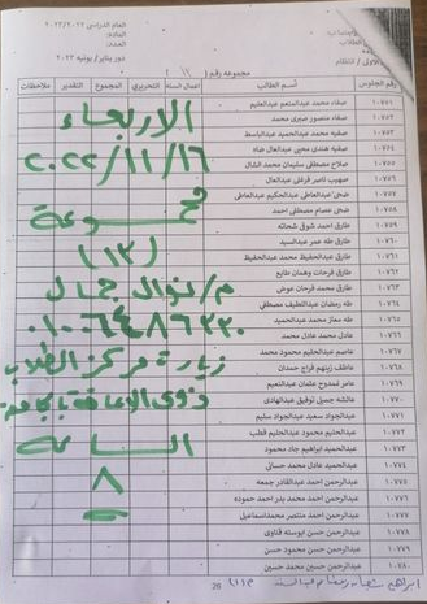 العام الدراسي ٢٠٢٢/٢٠٢٣
المادة:
العدد:
دور يناير / يونيه ٢٠٢٣
الطلاب
الأولى / انتظام
مجموعة رقم (١٢)
رقم الجلوس اسم الطالب أعمال السنة التحريري المجموع التقدير ملاحظات
١٠٧٥١ صفاء محمد عبدالمنعم عبدالعليم
١٠٧٥٢ صفاء منصور صبرى محمد
١٠٧٥٣ صفيه محمد عبدالحميد عبدالباسط
١٠٧٥٤ صفيه هندى محيى عبدالعال
١٠٧٥٥ صلاح مصطفى سليمان محمد
١٠٧٥٦ صهيب ناصر فرغلى عبدالعال
١٠٧٥٧ ضحى عبدالعاطى عبدالحكيم عبدالعاطى
١٠٧٥٨ ضحى عصام مصطفى احمد
١٠٧٥٩ طارق احمد شوقى شحاته
١٠٧٦٠ طارق طه عمر عبدالسيد
١٠٧٦١ طارق عبدالحفيظ محمد عبدالحفيظ
١٠٧٦٢ طارق فرحات وهمان طايع
١٠٧٦٣ طارق محمد فرحان عوض
١٠٧٦٤ طه رمضان عبداللطيف مصطفى
١٠٧٦٥ طه معتز محمد عبدالحميد
١٠٧٦٦ عادل محمد عادل محمد
١٠٧٦٧ عاصم عبدالحليم محمود محمد
١٠٧٦٨ عاطف زينهم فراج حمدان
١٠٧٦٩ عامر ممدوح عثمان عبدالنعيم
١٠٧٧٠ عائشه جميل توفيق عبدالهادى
١٠٧٧١ عبدالجواد سعيد عبدالجواد سليم
١٠٧٧٢ عبدالحليم محمود عبدالحليم قطب
١٠٧٧٣ عبدالحميد ابراهيم جاد محمود
١٠٧٧٤ عبدالحميد عادل محمد حسانى
١٠٧٧٥ عبدالرحمن احمد عبدالقادر جمعه
١٠٧٧٦ عبدالرحمن احمد محمد بدر احمد حموده
١٠٧٧٧ عبدالرحمن احمد منتصر محمد اسماعيل
١٠٧٧٨ عبدالرحمن حسن ابوسته قناوى
١٠٧٧٩ عبدالرحمن حسن محمود حسن
١٠٧٨٠ عبدالرحمن حسين محمد حسين
الاربعاء
٢٠٢٢/١١/١٦
مجموعة
(١٢)
م/ نوال جمال
٠١٠٠٦٤٨٦٣٣٠
زيارة مركز الطلاب
ذوى الإعاقة بالجامعة
الساعة
٨
29
ابراهيم شحاته